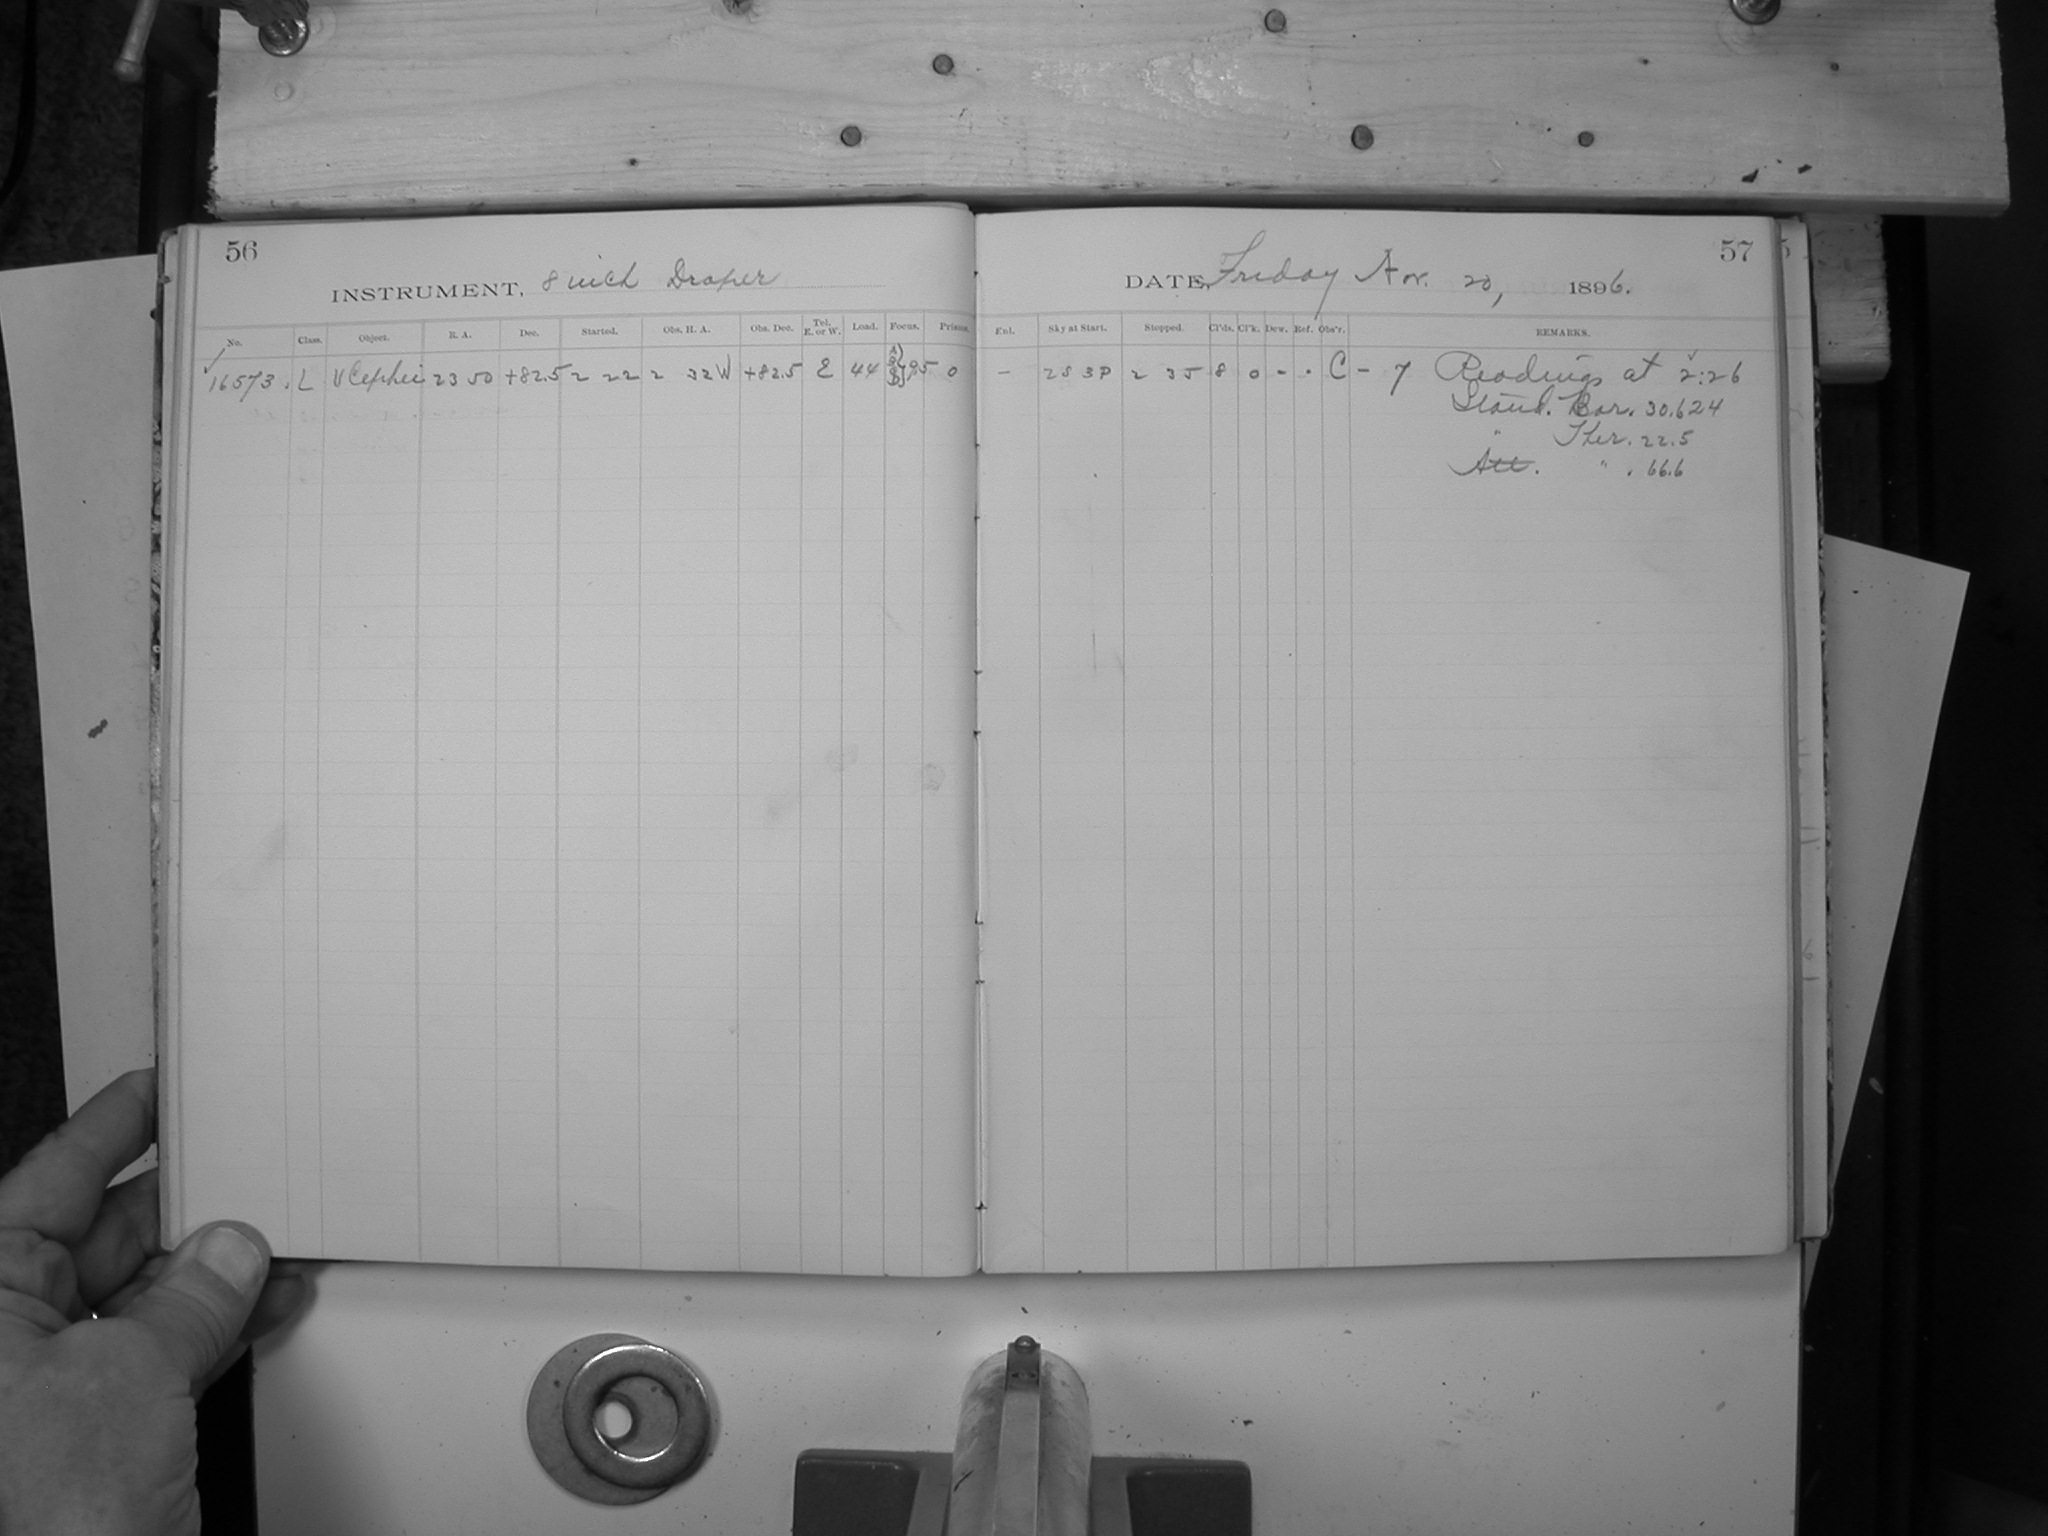 56
INSTRUMENT, 8 inch Draper
No. Class. Object. R. A. Dec. Started. Obs. H. A. Obs. Dec. Tel. E. or W. Load. Focus. Prisms.
16573. L U Cephei 23 50 +82.5 2 22 2 32 W +82.5 E 44 9.5 0
57
DATE, Friday Nov. 20, 1896.
Enl. Sky at Start. Stopped. Cl'ds. Cl'k. Dew. Ref. Obs'r. REMARKS.
– 2S 3P 2 35 8 0 - . C – 7 Readings at 2:26
Stand. Bar. 30.624
" Ther. 22.5
Att. " . 66.6